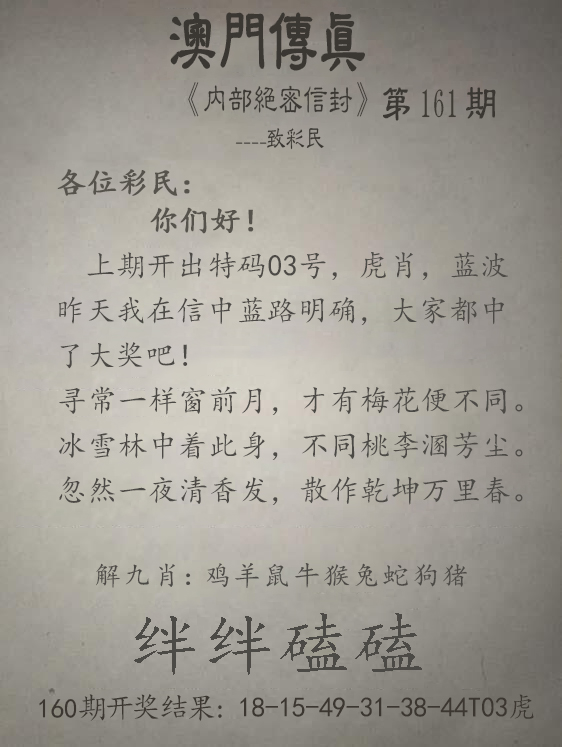 澳門傳真
《内部絕密信封》第161期
----致彩民
各位彩民：
你们好！
上期开出特码03号，虎肖，蓝波
昨天我在信中蓝路明确，大家都中
了大奖吧！
寻常一样窗前月，才有梅花便不同。
冰雪林中着此身，不同桃李溷芳尘。
忽然一夜清香发，散作乾坤万里春。
解九肖：鸡羊鼠牛猴兔蛇狗猪
绊绊磕磕
160期开奖结果：18-15-49-31-38-44T03虎